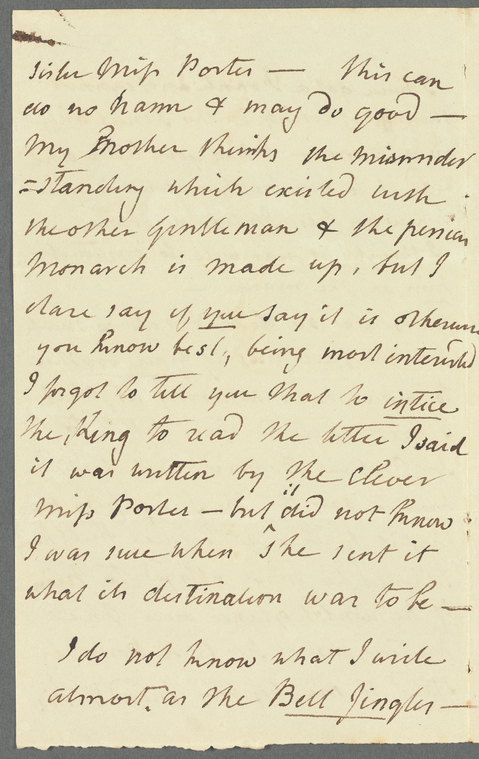 sister Miss Porter — this can
do no harm & may do good —
My Mother thinks the misunder
=standing which existed with
the other Gentleman & the persian
Monarch is made up, but I
dare say if you say it is otherwise
you know best, being most interested
I forgot to tell you that to intice
the King to read the letter I said
it was written by the clever
Miss Porter — but did not know
I was sure when she sent it
what its destination was to be —
I do not know what I write
almost, as the Bell Jingles —